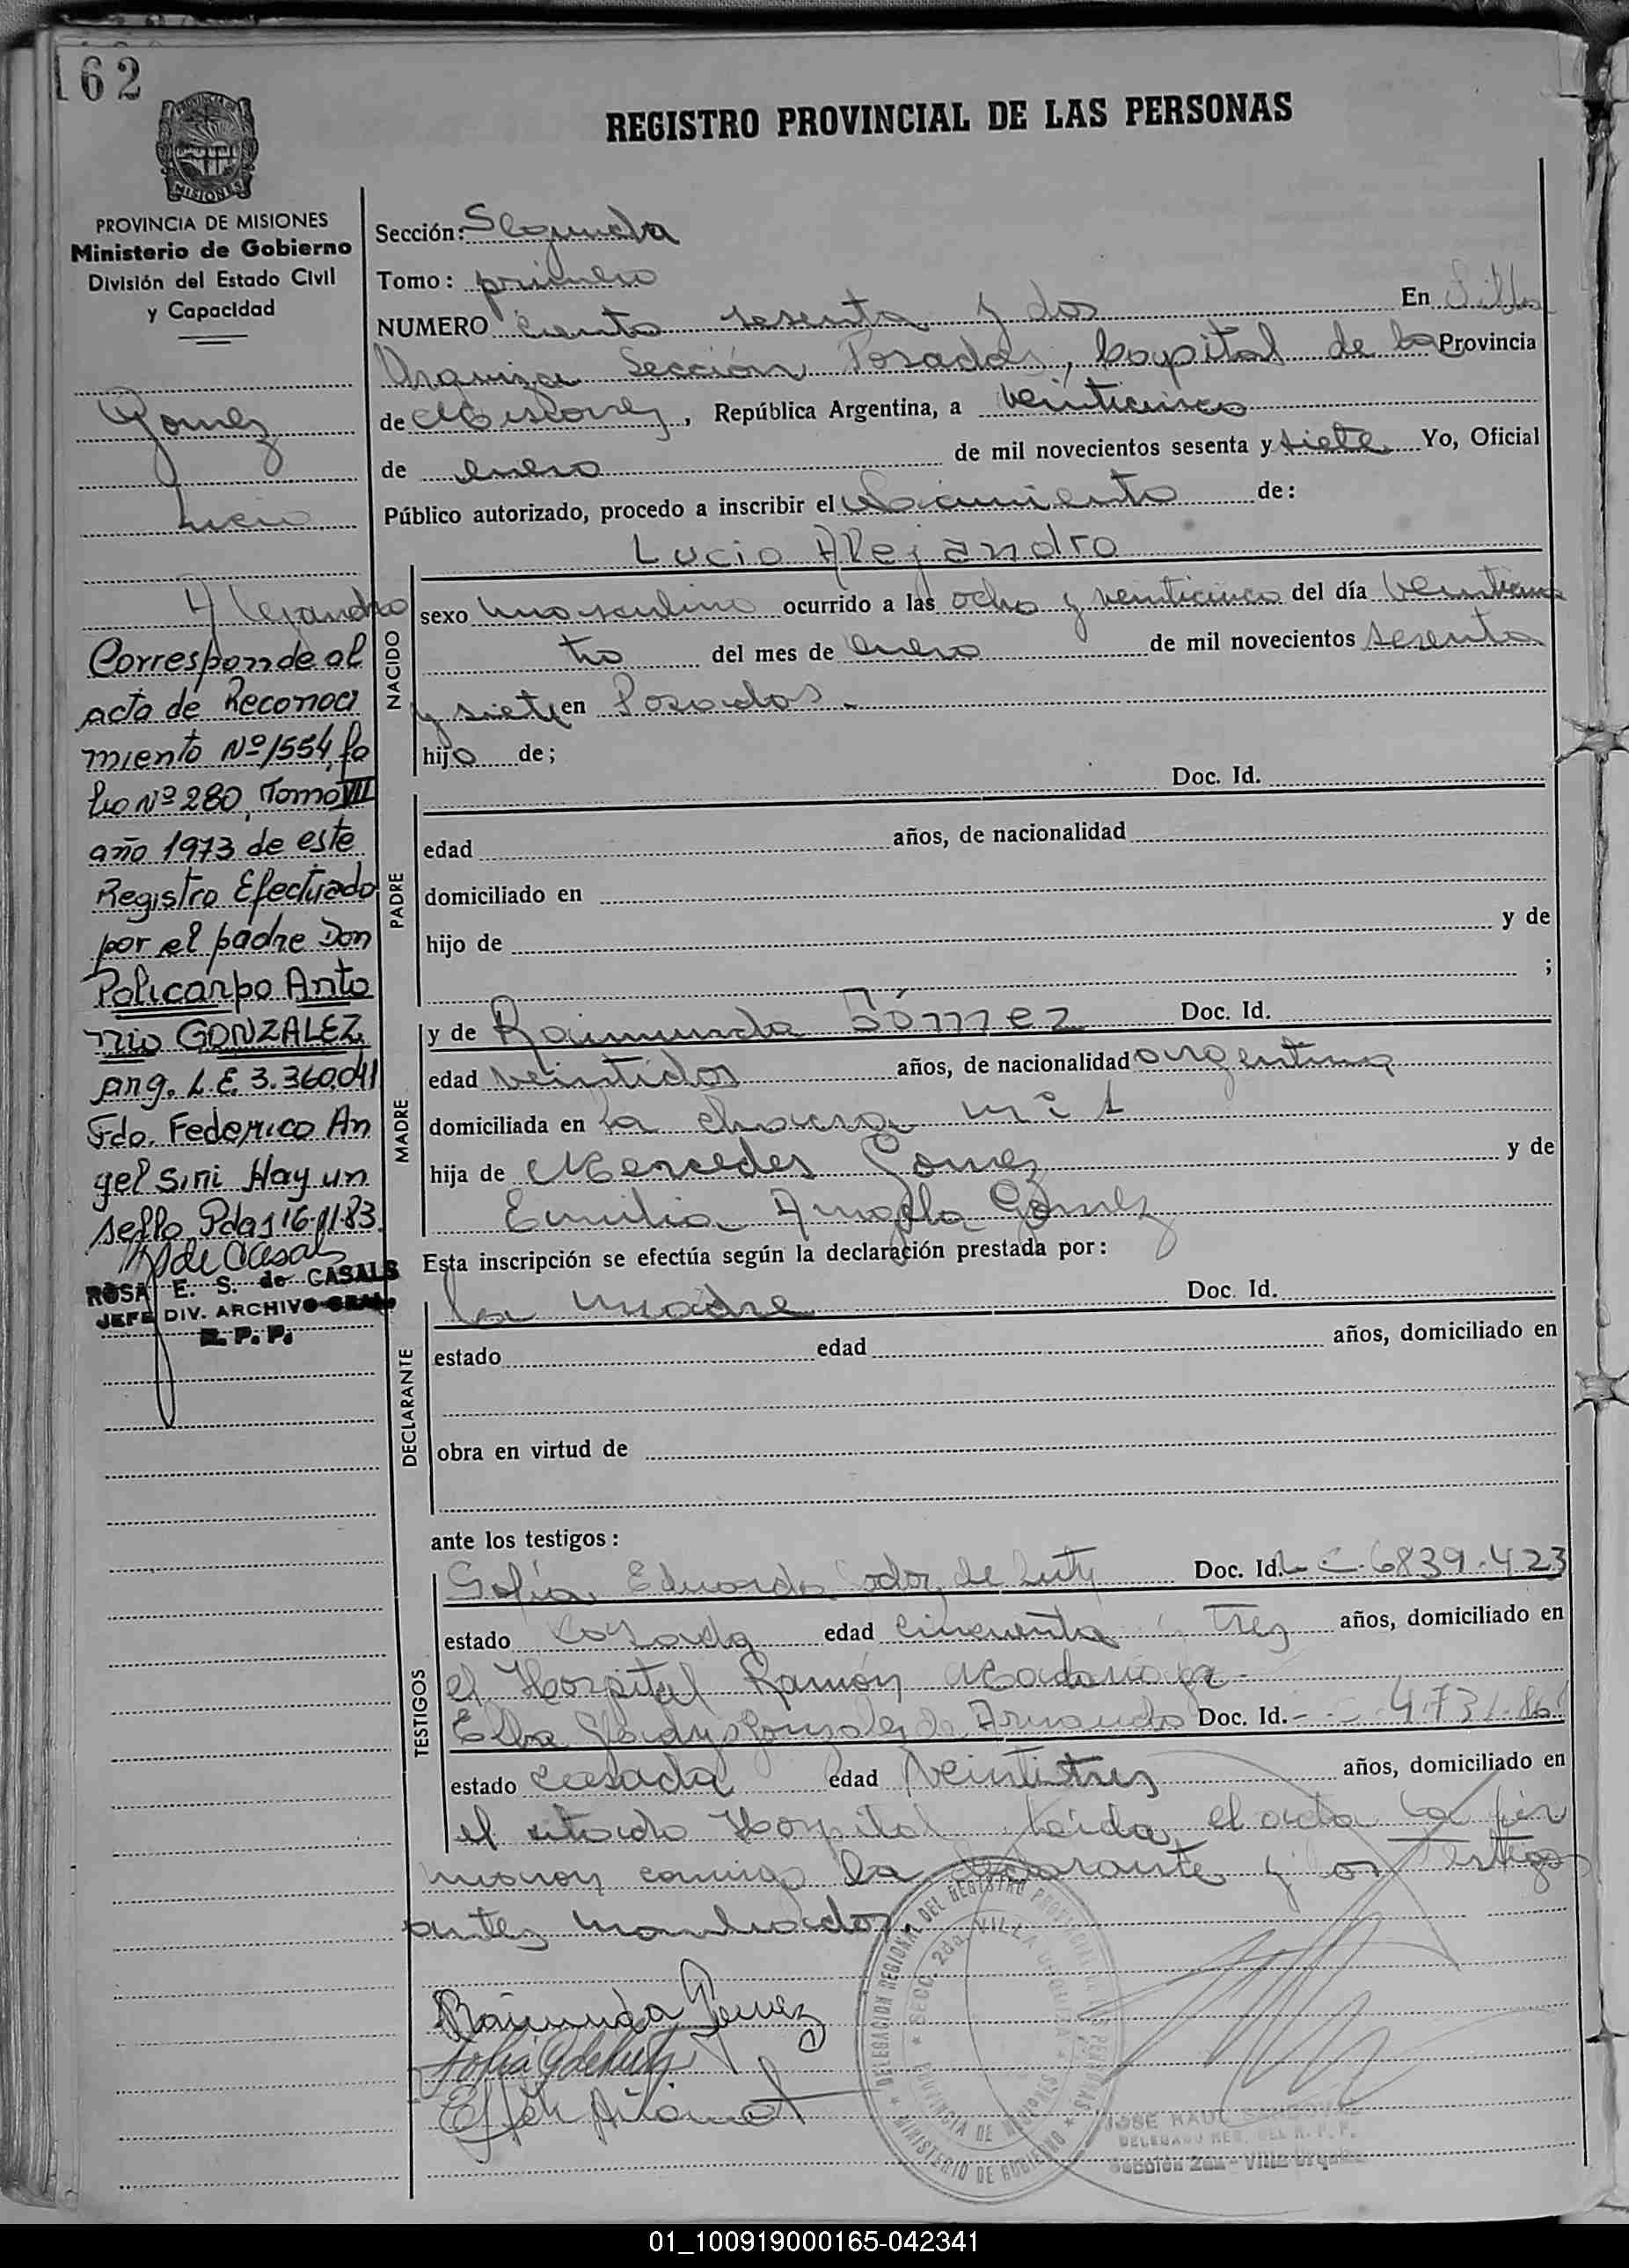 162
REGISTRO PROVINCIAL DE LAS PERSONAS
PROVINCIA DE MISIONES
Ministerio de Gobierno
División del Estado Civil
y Capacidad
Gomez
Lucio
Alejandro
Corresponde al
acta de Reconoci
miento Nº 1554, fo
lio Nº 280, Tomo VII
año 1973 de este
Registro Efectuado
por el padre Don
Policarpo Anto
nio GONZALEZ
arg. L.E. 3.360.041
Fdo. Federico An
gel Sini Hay un
sello Pdas 16-11-83.
ROSA E. S. de CASALS
JEFE DIV. ARCHIVO GRAL.
R. P. P.
Sección: Segunda
Tomo: primero
NUMERO Ciento sesenta y dos En Villa
Urquiza Sección Posadas, Capital de la Provincia
de Misiones, República Argentina, a veinticinco
de enero de mil novecientos sesenta y siete Yo, Oficial
Público autorizado, procedo a inscribir el Nacimiento de:
Lucio Alejandro
NACIDO
sexo masculino ocurrido a las ocho y veinticinco del día veinticua
tro del mes de enero de mil novecientos sesenta
y siete en Posadas.
hijo de;
Doc. Id.
PADRE
edad años, de nacionalidad
domiciliado en
hijo de y de
;
MADRE
y de Raimunda Gómez Doc. Id.
edad veintidos años, de nacionalidad argentina
domiciliada en la chacra nº 1
hija de Mercedes Gomez y de
Emilia Angela Gómez
Esta inscripción se efectúa según la declaración prestada por:
DECLARANTE
la madre Doc. Id.
estado edad años, domiciliado en
obra en virtud de
ante los testigos:
TESTIGOS
Sofía Eduarda de Doc. Id. L.C. 6839.423
estado Casada edad cincuenta y Tres años, domiciliado en
el Hospital Ramón Madariaga
Elba Gladys Gonzalez de Doc. Id.
estado casada edad veintitres años, domiciliado en
el citado Hospital leída el acta la fir
maron conmigo la declarante y los testigos
antes nombrados.
Raimunda Gomez
DELEGACION REGIONAL DEL REGISTRO PROVINCIAL DE LAS PERSONAS
SECC. 2da. VILLA URQUIZA
PROVINCIA DE MISIONES
MINISTERIO DE GOBIERNO
JOSE RAUL SANDOVAL
DELEGADO REG. DEL R. P. P.
Sección 2da. - Villa Urquiza
01_100919000165-042341